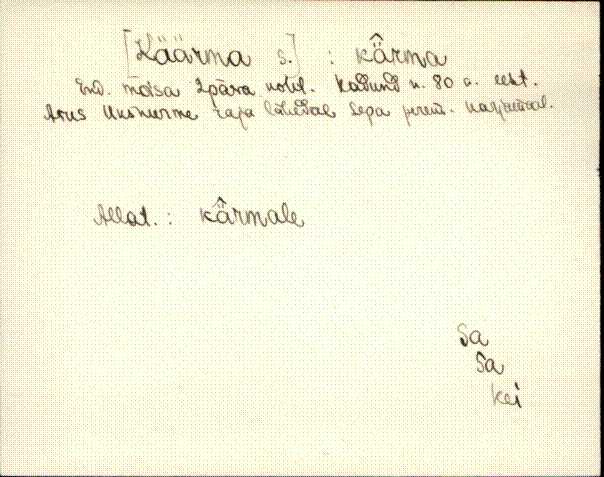 [Käärma s.] : kä̂rma
End. mõisa 2pära koht. Kadund u. 80 a. eest.
Asus Uksnurme raja lähedal Sepa perem. karjamaal.
Allat. : kä̂rmale
Sa
Sa
kei